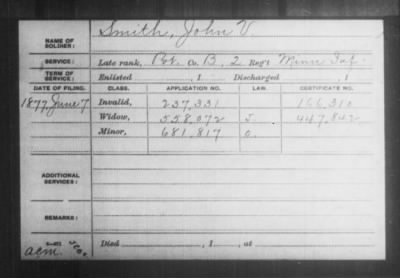 Smith, John V.
NAME OF SOLDIER:
SERVICE: Late rank, Pvt. Co. B, 2 Reg't Minn Inf.
TERM OF SERVICE: Enlisted , 1 Discharged , 1
DATE OF FILING. CLASS. APPLICATION NO. LAW. CERTIFICATE NO.
1877, June 7 Invalid, 237,331 166,310
Widow, 558,072 J. 447,842
Minor, 681,817 O.
ADDITIONAL SERVICES:
REMARKS:
Died , 1 , at
acm.